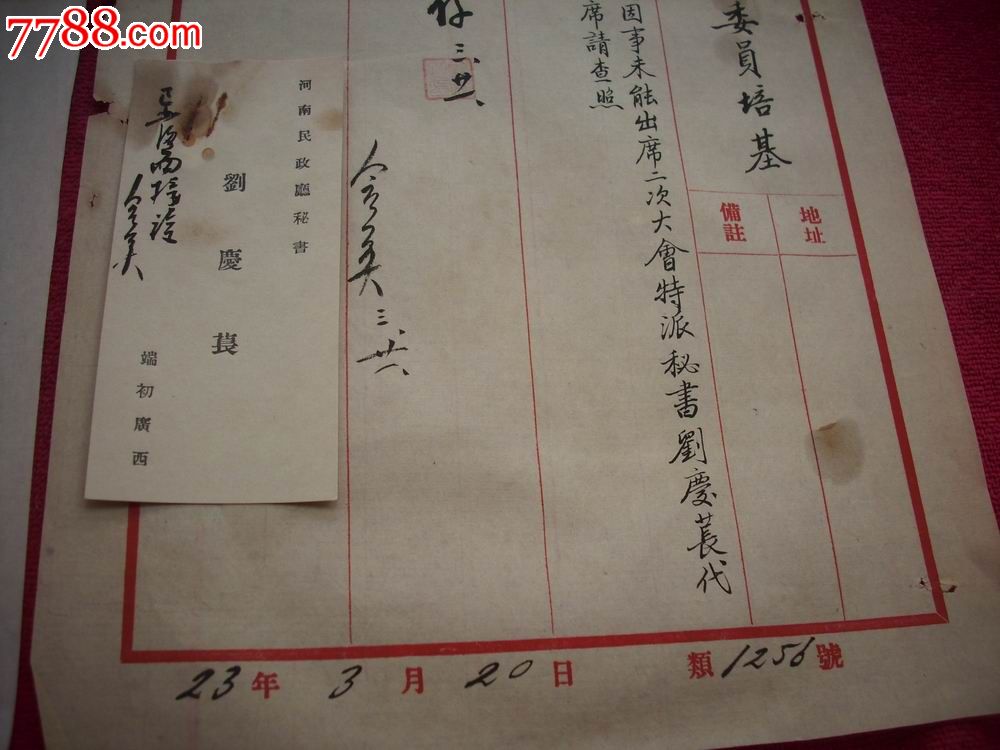 7788.com
委員培基
地址
備註
因事未能出席二次大會特派秘書劉慶萇代
席請查照
存 三、廿一、
三、廿六、
河南民政廳秘書
劉慶萇
端初廣西
23年3月20日 類1256號